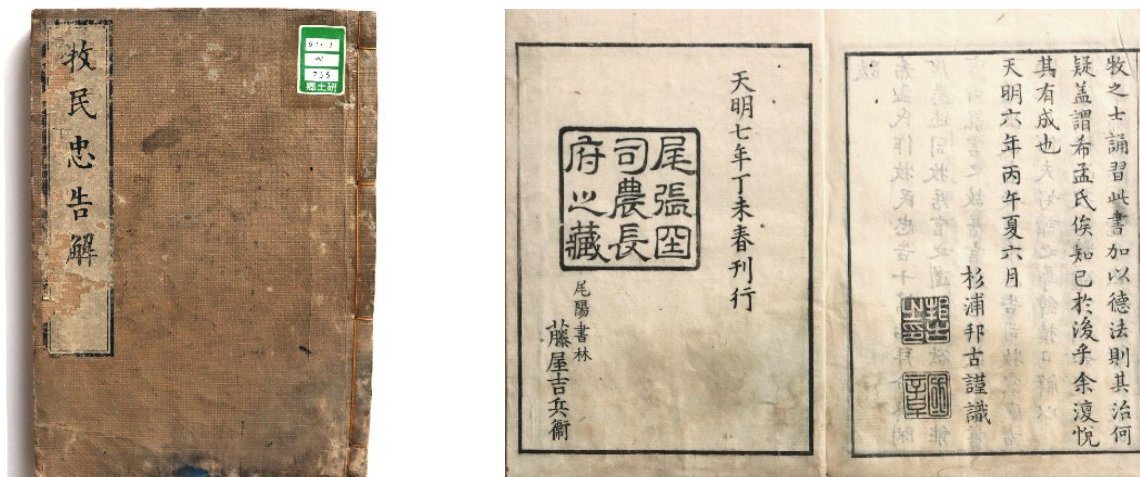 牧民忠告解
郷土研
牧之士誦習此書加以德法則其治何
疑盖謂希孟氏俟知己於後乎余深悅
其有成也
天明六年丙午夏六月
杉浦邦古謹識
天明七年丁未春刊行
尾張国
司農長
府之藏
尾陽書林
藤屋吉兵衛